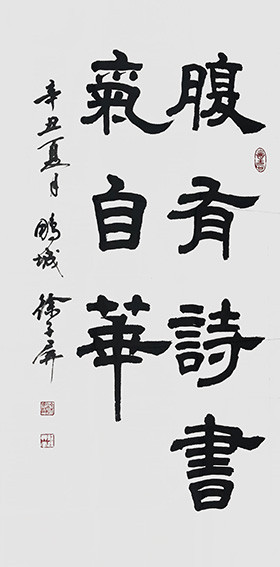 腹有詩書
氣自華
辛丑夏月鵬城徐子屏